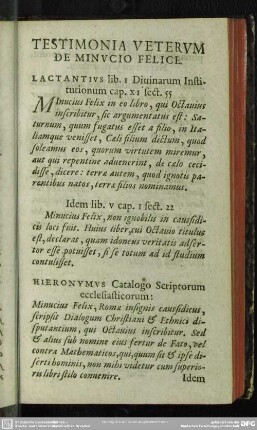 TESTIMONIA VETERVM
DE MINVCIO FELICE.
LACTANTIVS lib. I Diuinarum Insti-
tutionum cap. XI sect. 55
Minucius Felix in eo libro, qui Octauius
inscribitur, sic argumentatus est: Sa-
turnum, quum fugatus esset a filio, in Ita-
liamque venisset, Cæli filium dictum, quod
soleamus eos, quorum virtutem miremur,
aut qui repentine aduenerint, de cælo ceci-
disse, dicere: terræ autem, quod ignotis pa-
rentibus natos, terræ filios nominamus.
Idem lib. V cap. I sect. 22
Minucius Felix, non ignobilis in caussidi-
cis loci fuit. Huius liber, cui Octauio titulus
est, declarat, quam idoneus veritatis adser-
tor esse potuisset, si se totum ad id studium
contulisset.
HIERONYMVS Catalogo Scriptorum
ecclesiasticorum:
Minucius Felix, Romæ insignis caussidicus,
scripsit Dialogum Christiani & Ethnici di-
sputantium, qui Octauius inscribitur. Sed
& alius sub nomine eius fertur de Fato, vel
contra Mathematicos, qui, quum sit & ipse di-
serti hominis, non mihi videtur cum superio-
ris libri stilo conuenire.
Idem